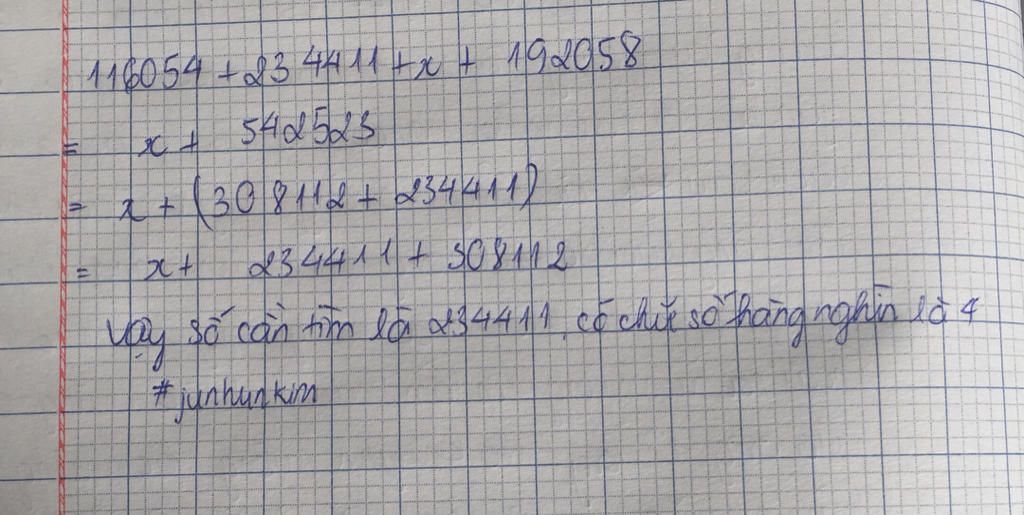 116054 + 234411 + x + 192058
= x + 542523
= x + (308112 + 234411)
= x + 234411 + 308112
Vậy số cần tìm là 234411, có chữ số hàng nghìn là 4
#junhunkim